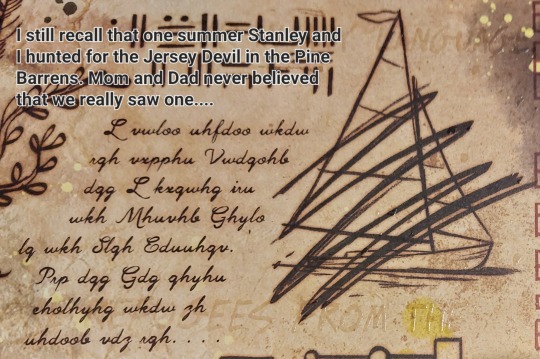 I still recall that one summer Stanley and
I hunted for the Jersey Devil in the Pine
Barrens. Mom and Dad never believed
that we really saw one....
L vwloo uhfdoo wkdw
rqh vxpphu Vwdqohb
dqg L kxqwhg iru
wkh Mhuvhb Ghylo
lq wkh Slqh Eduuhqv.
Prp dqg Gdg qhyhu
eholhyhg wkdw zh
uhdoob vdz rqh. . . .
FROM THE